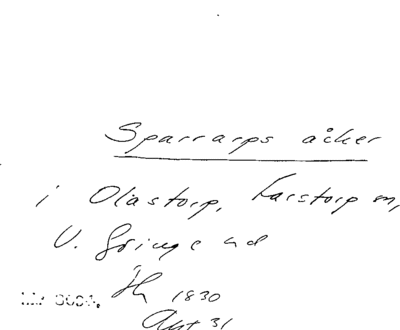 Sparrarps åker
i Olastorp, Farstorp m,
V. Göinge hd
1830
Akt 31